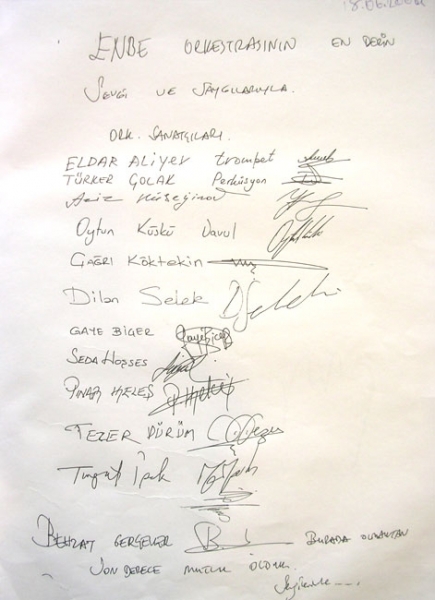 ENBE ORKESTRASININ EN DERİN
SEVGİ VE SAYGILARIYLA.
ORK. SANATÇILARI.
ELDAR ALİYEV trompet
TÜRKER ÇOLAK Perküsyon
Aziz
Oytun Küskü Davul
ÇAĞRI Köktekin
Dilan Selek
GAYE BİÇER
SEDA HOŞSES
PINAR KELEŞ
TEZER DÜRÜM
Turgut İpek
BEHZAT GERÇEKER BURADA OLMAKTAN
SON DERECE MUTLU OLDUK.